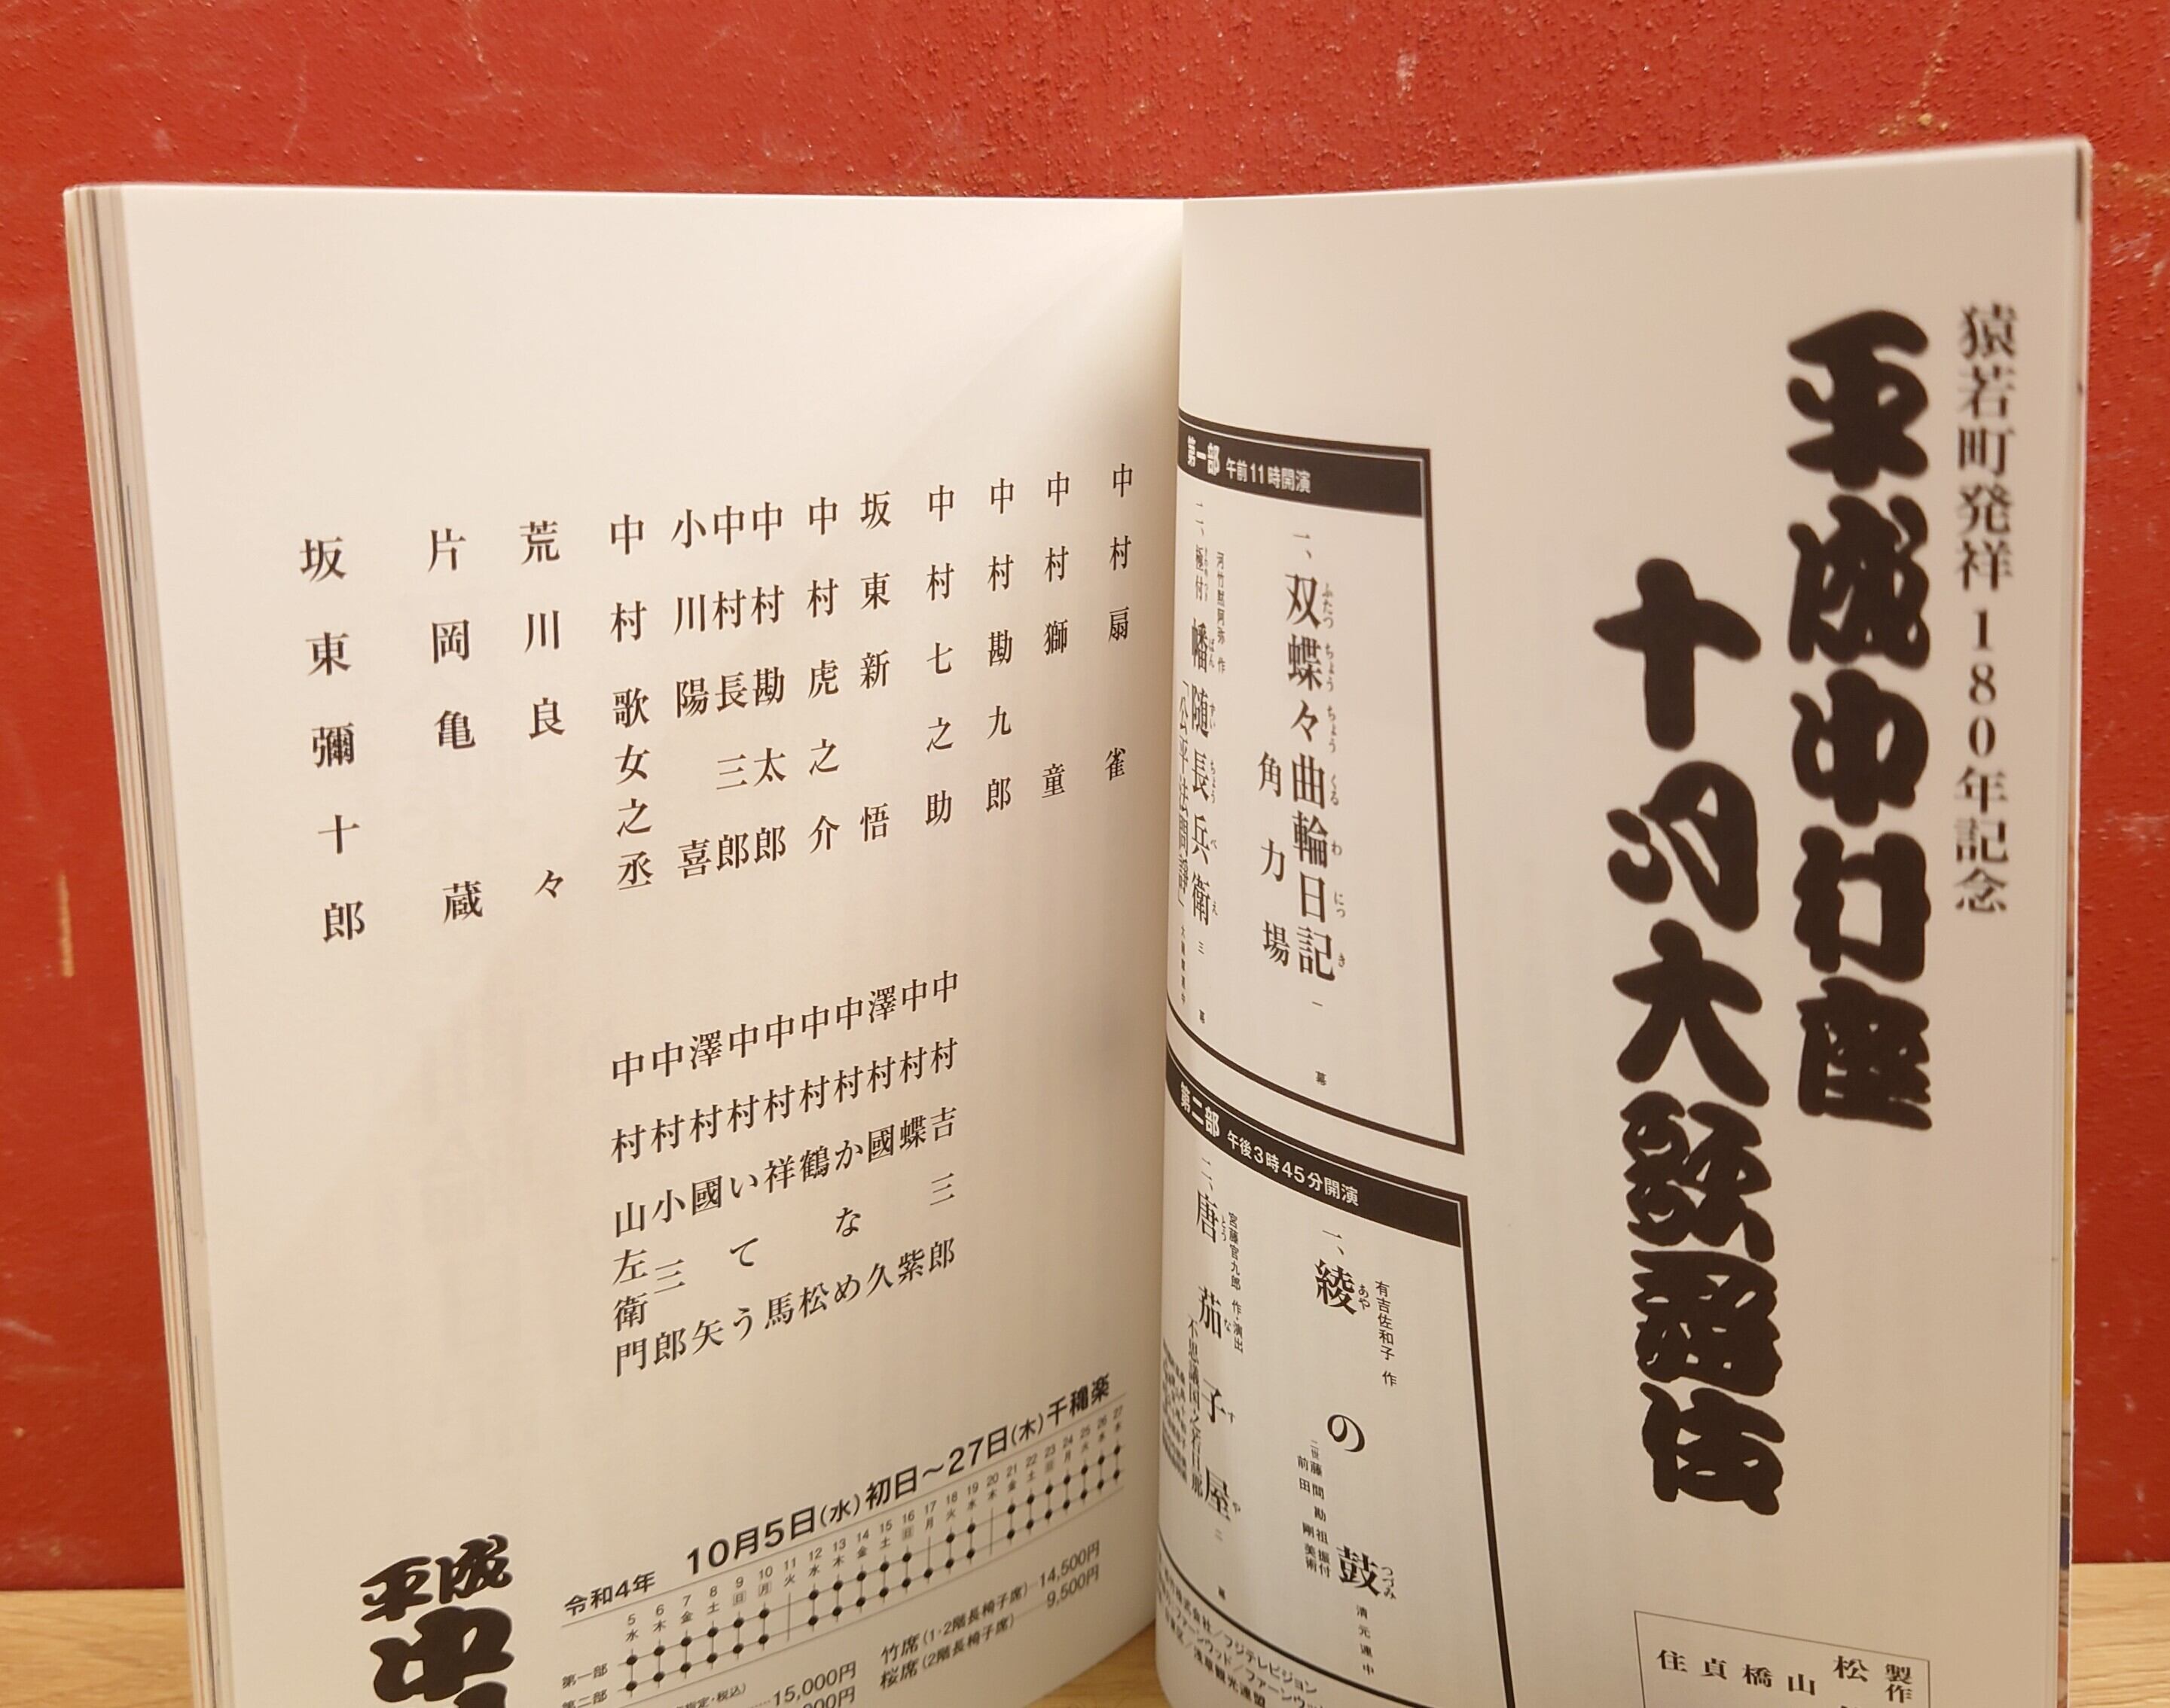 猿若町発祥180年記念
平成中村座
十月大歌舞伎
第一部 午前11時開演
一、双蝶々曲輪日記 一幕
ふたつちょうちょうくるわにっき
角力場
河竹黙阿弥 作
二、極付 幡随長兵衛 三幕
「公平法問諍」
第二部 午後3時45分開演
有吉佐和子 作
一、綾の鼓
あや つづみ
二世藤間勘祖 振付
前田剛 美術
清元連中
宮藤官九郎 作・演出
二、唐茄子屋 二幕
とうなすや
不思議国之若旦那
製作
松
山
橋
貞
住
中村扇雀
中村獅童
中村勘九郎
中村七之助
坂東新悟
中村虎之介
中村勘太郎
中村長三郎
小川陽喜
中村歌女之丞
荒川良々
片岡亀蔵
坂東彌十郎
中村吉三郎
中村蝶紫
澤村國久
中村かなめ
中村鶴松
中村祥馬
中村いてう
澤村國矢
中村小三郎
中村山左衛門
令和4年 10月5日(水)初日〜27日(木)千穐楽
5 6 7 8 9 10 11 12 13 14 15 16 17 18 19 20 21 22 23 24 25 26 27
水 木 金 土 日 月 火 水 木 金 土 日 月 火 水 木 金 土 日 月 火 水 木
第一部
第二部
15,000円
竹席(1・2階長椅子席) 14,500円
桜席(2階長椅子席) 9,500円
平成
中